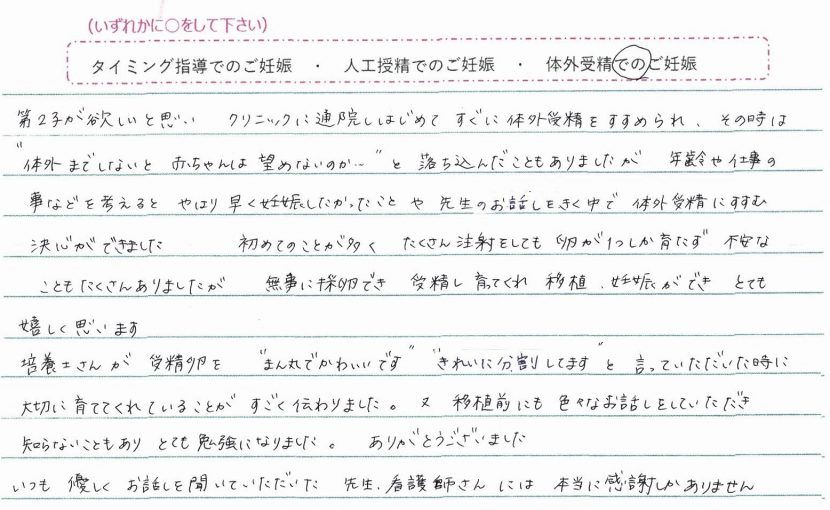 (いずれかに○をして下さい)
タイミング指導でのご妊娠 ・ 人工授精でのご妊娠 ・ 体外受精でのご妊娠
第2子が欲しいと思い クリニックに通院しはじめて すぐに体外受精をすすめられ、その時は
"体外までしないと 赤ちゃんは望めないのか…"と 落ち込んだこともありましたが 年齢や仕事の
事などを考えると やはり早く妊娠したかったこと や 先生のお話しをきく中で 体外受精にすすむ
決心ができました 初めてのことが多く たくさん注射をしても 卵が1つしか育たず 不安な
こともたくさんありましたが 無事に採卵でき 受精し育てくれ 移植、妊娠ができ とても
嬉しく思います
培養士さんが 受精卵を "まん丸でかわいいです" "きれいに分割してます"と 言っていただいた時に
大切に育ててくれていることが すごく伝わりました。又 移植前にも 色々なお話しをしていただき
知らないこともあり とても勉強になりました。 ありがとうございました
いつも 優しく お話しを聞いていただいた 先生、看護師さん には 本当に感謝しかありません